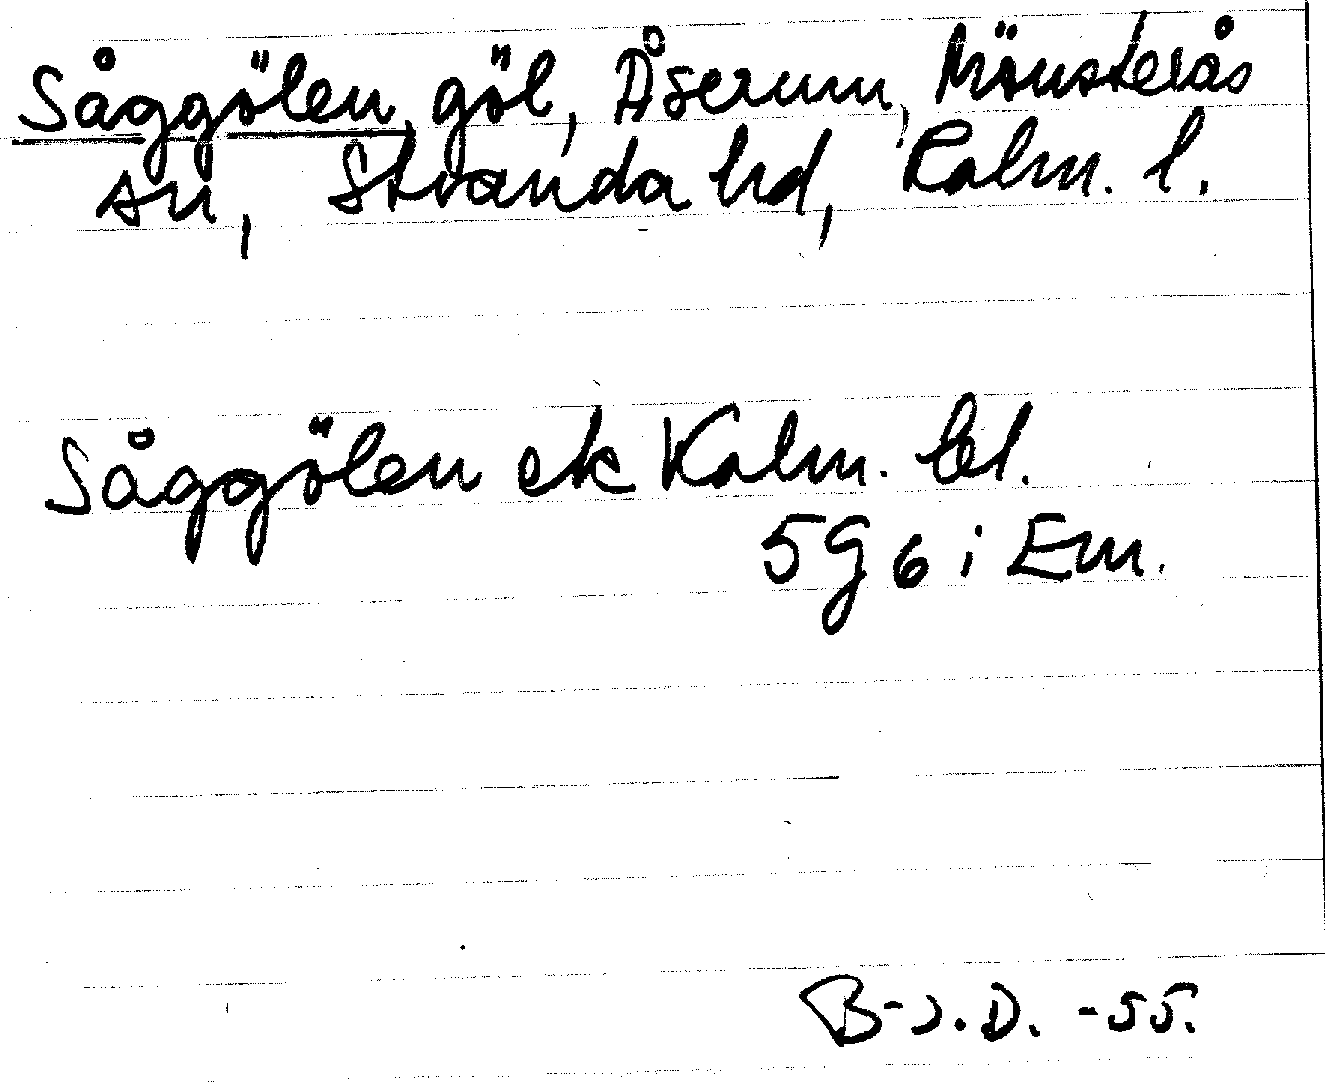 Såggölen, göl, Åserum, Mönsterås
sn, Stranda hd, Kalm. l.
Såggölen ek Kalm. bl.
5 G 6 i Em.
B-J.D. -55.